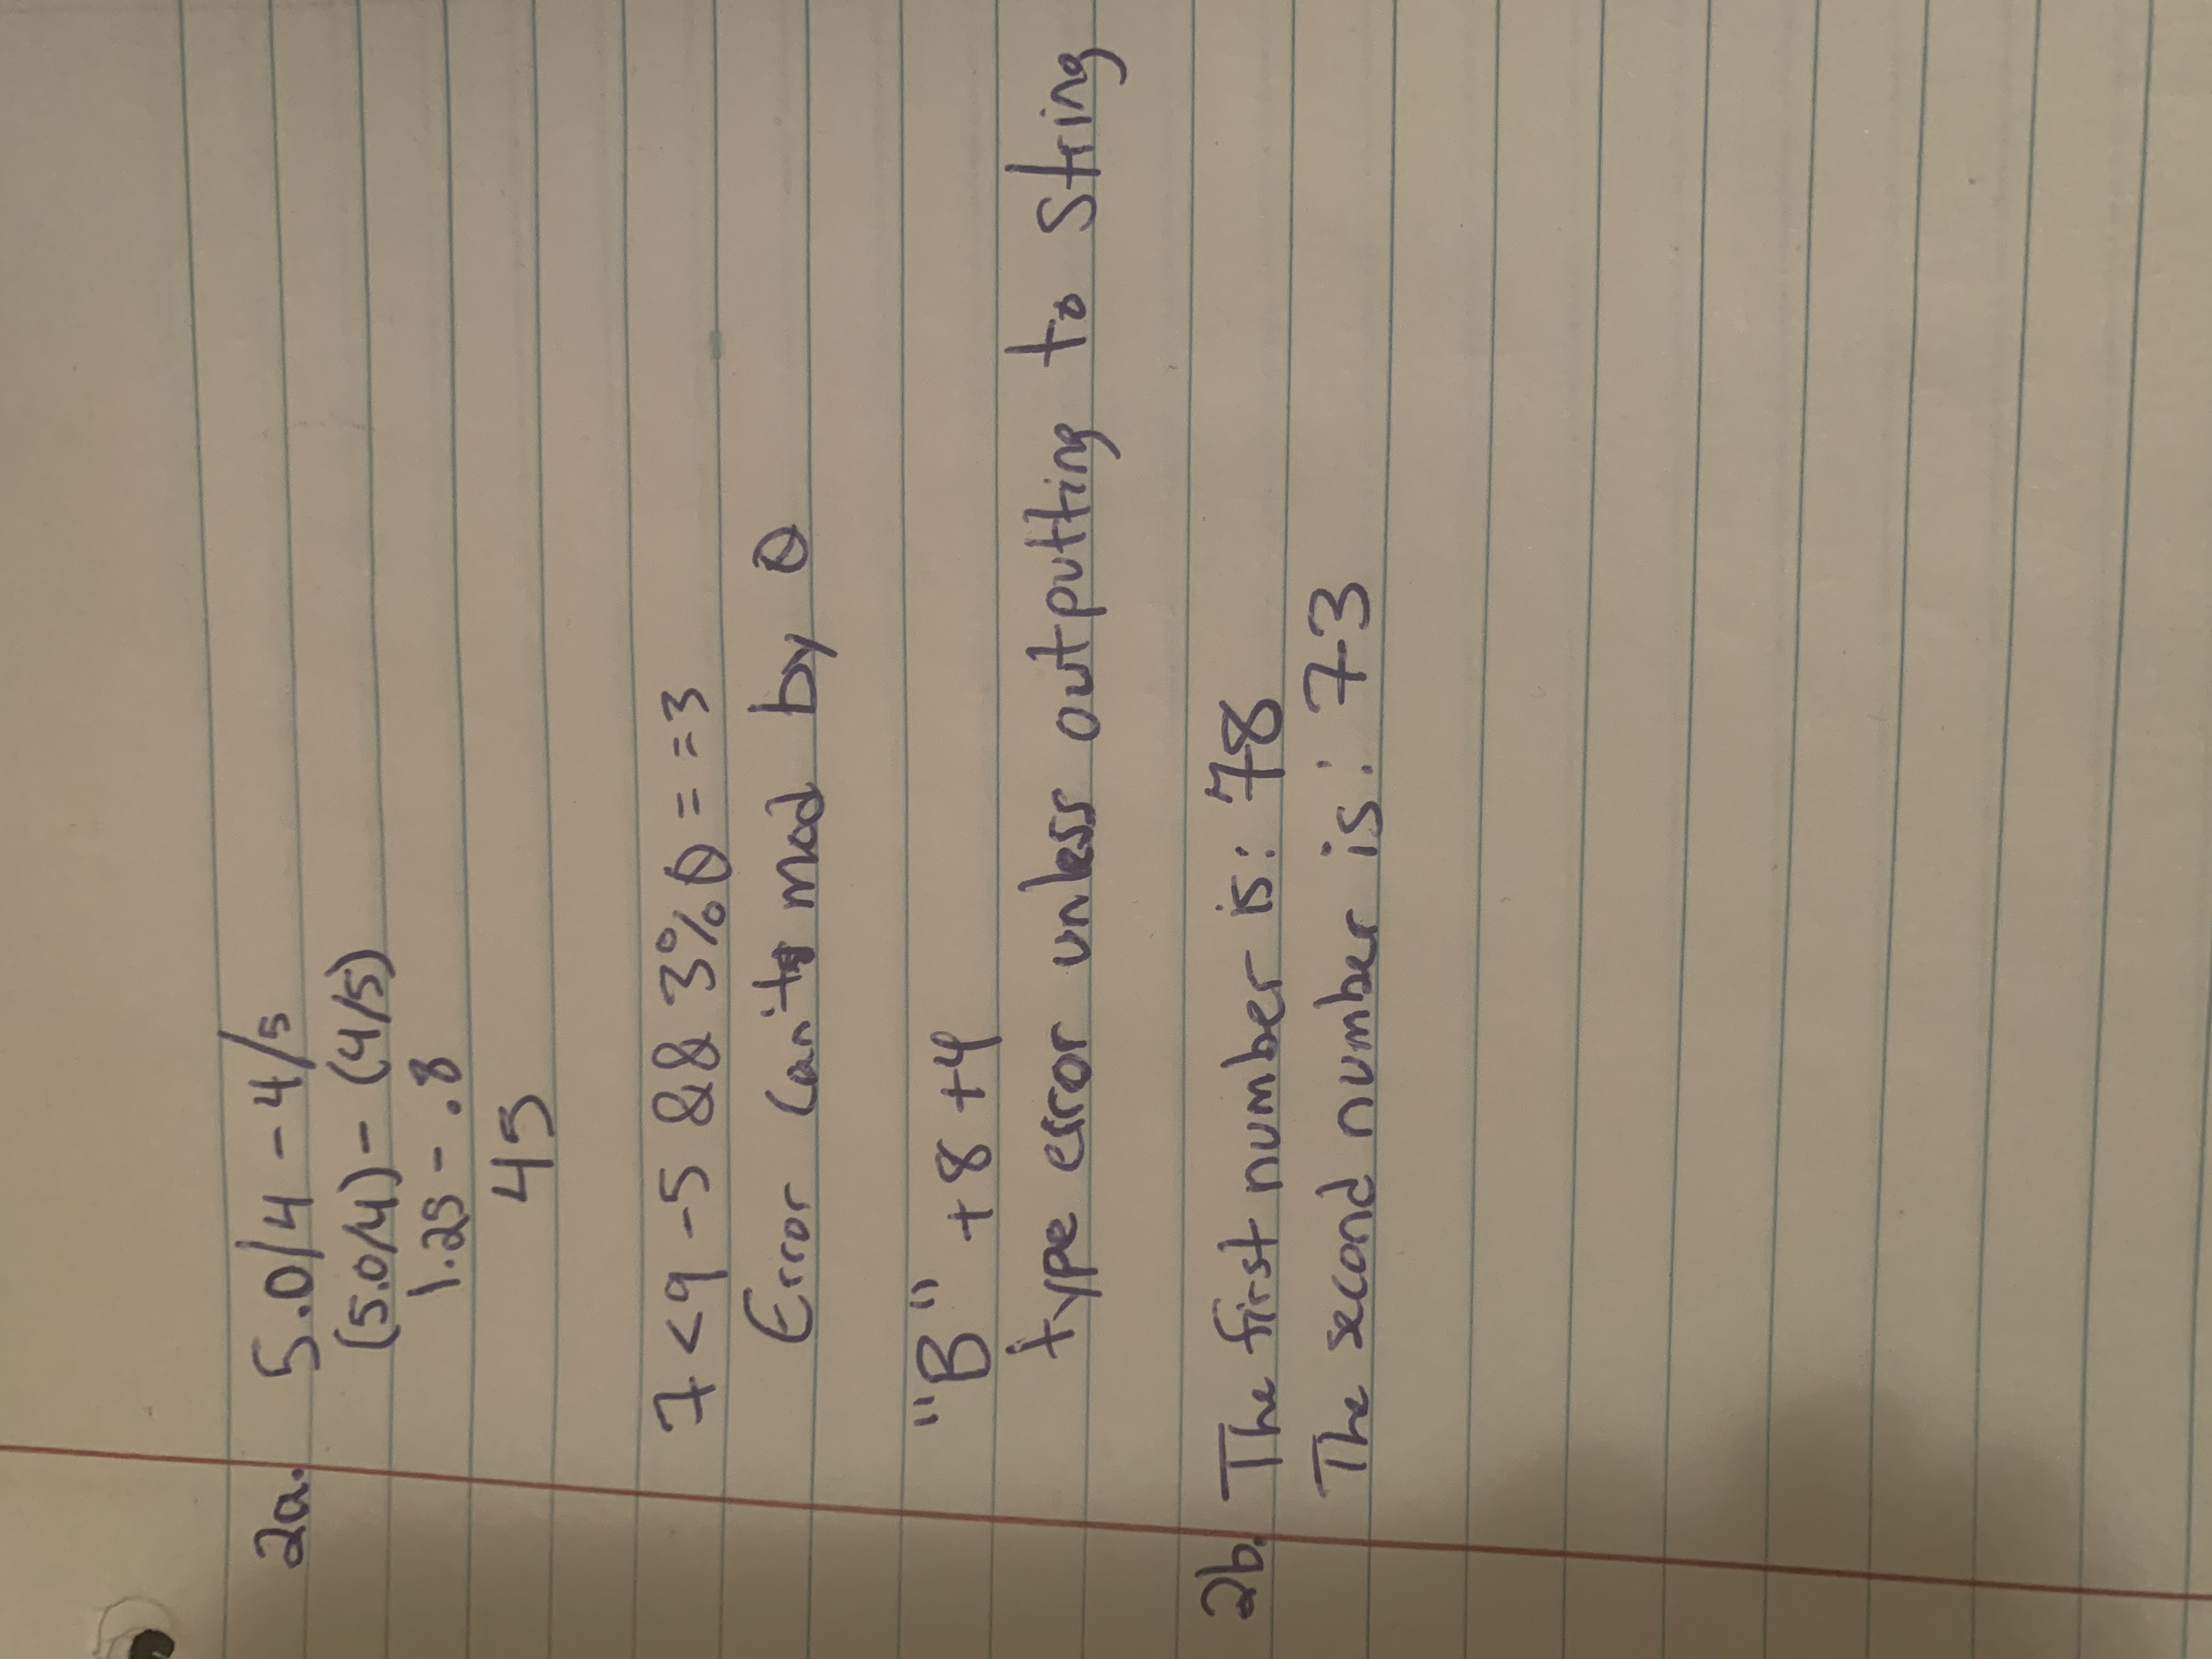 2a. 5.0/4 - 4/5
(5.0/4) - (4/5)
1.25 - .8
45
7 < 9 - 5 && 3%0 = = 3
Error can't mod by 0
"B" + 8 + 4
type error unless outputting to string
2b. The first number is: 78
The second number is: 73